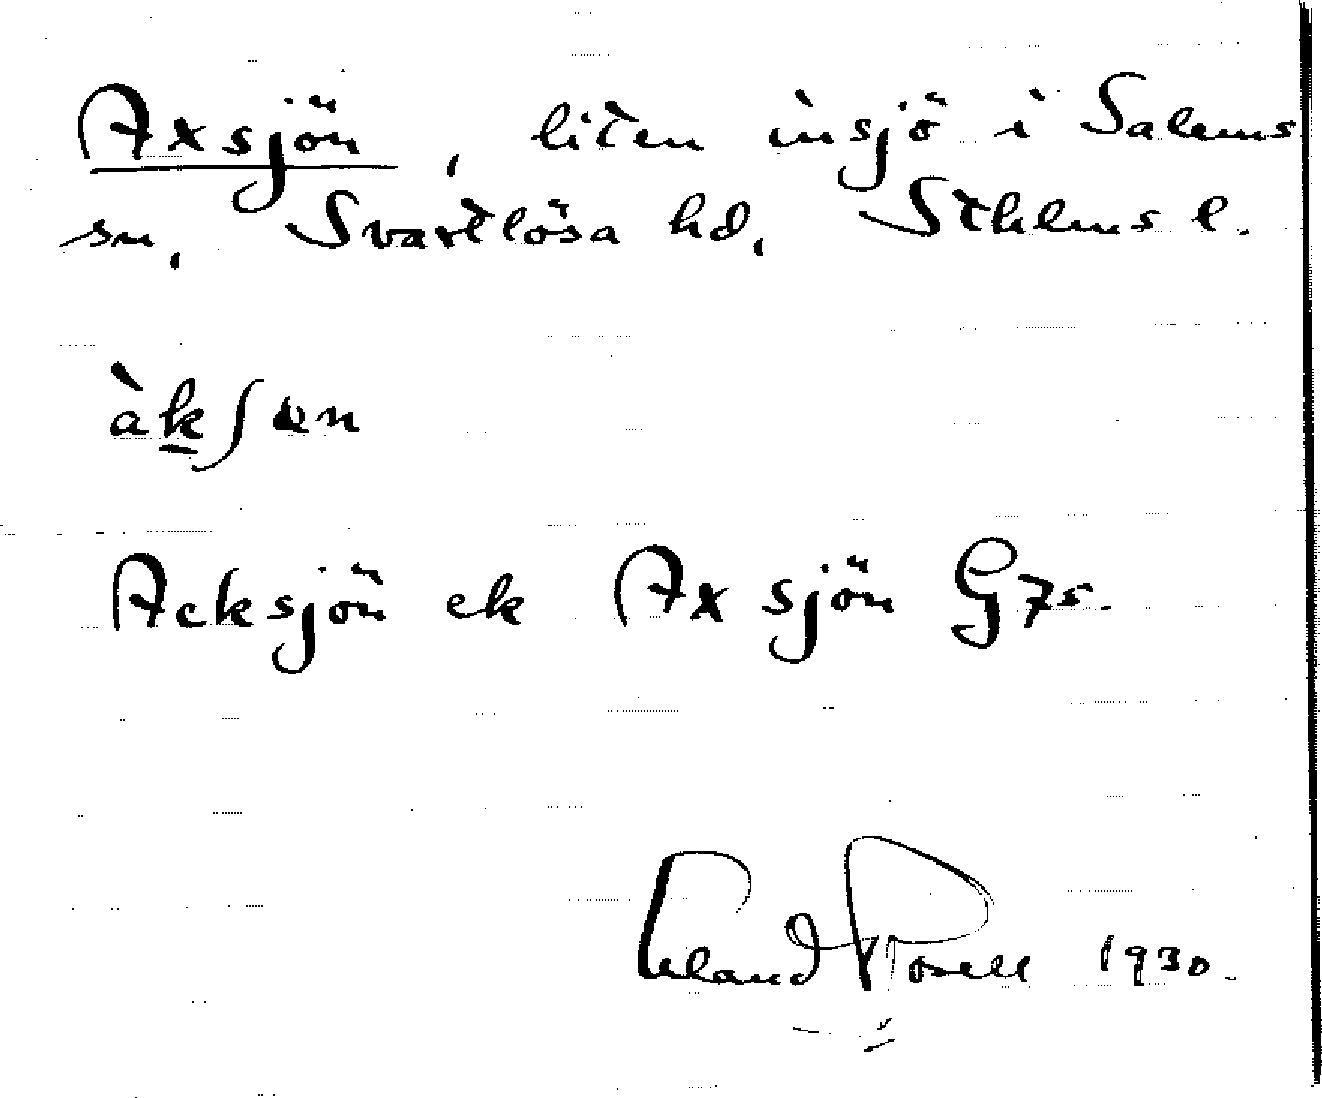 Axsjön, liten insjö i Salems
sn, Svartlösa hd, Sthlms l.
àkʃɷn
Acksjön ek Axsjön G7s.
Erland Rosell 1930.